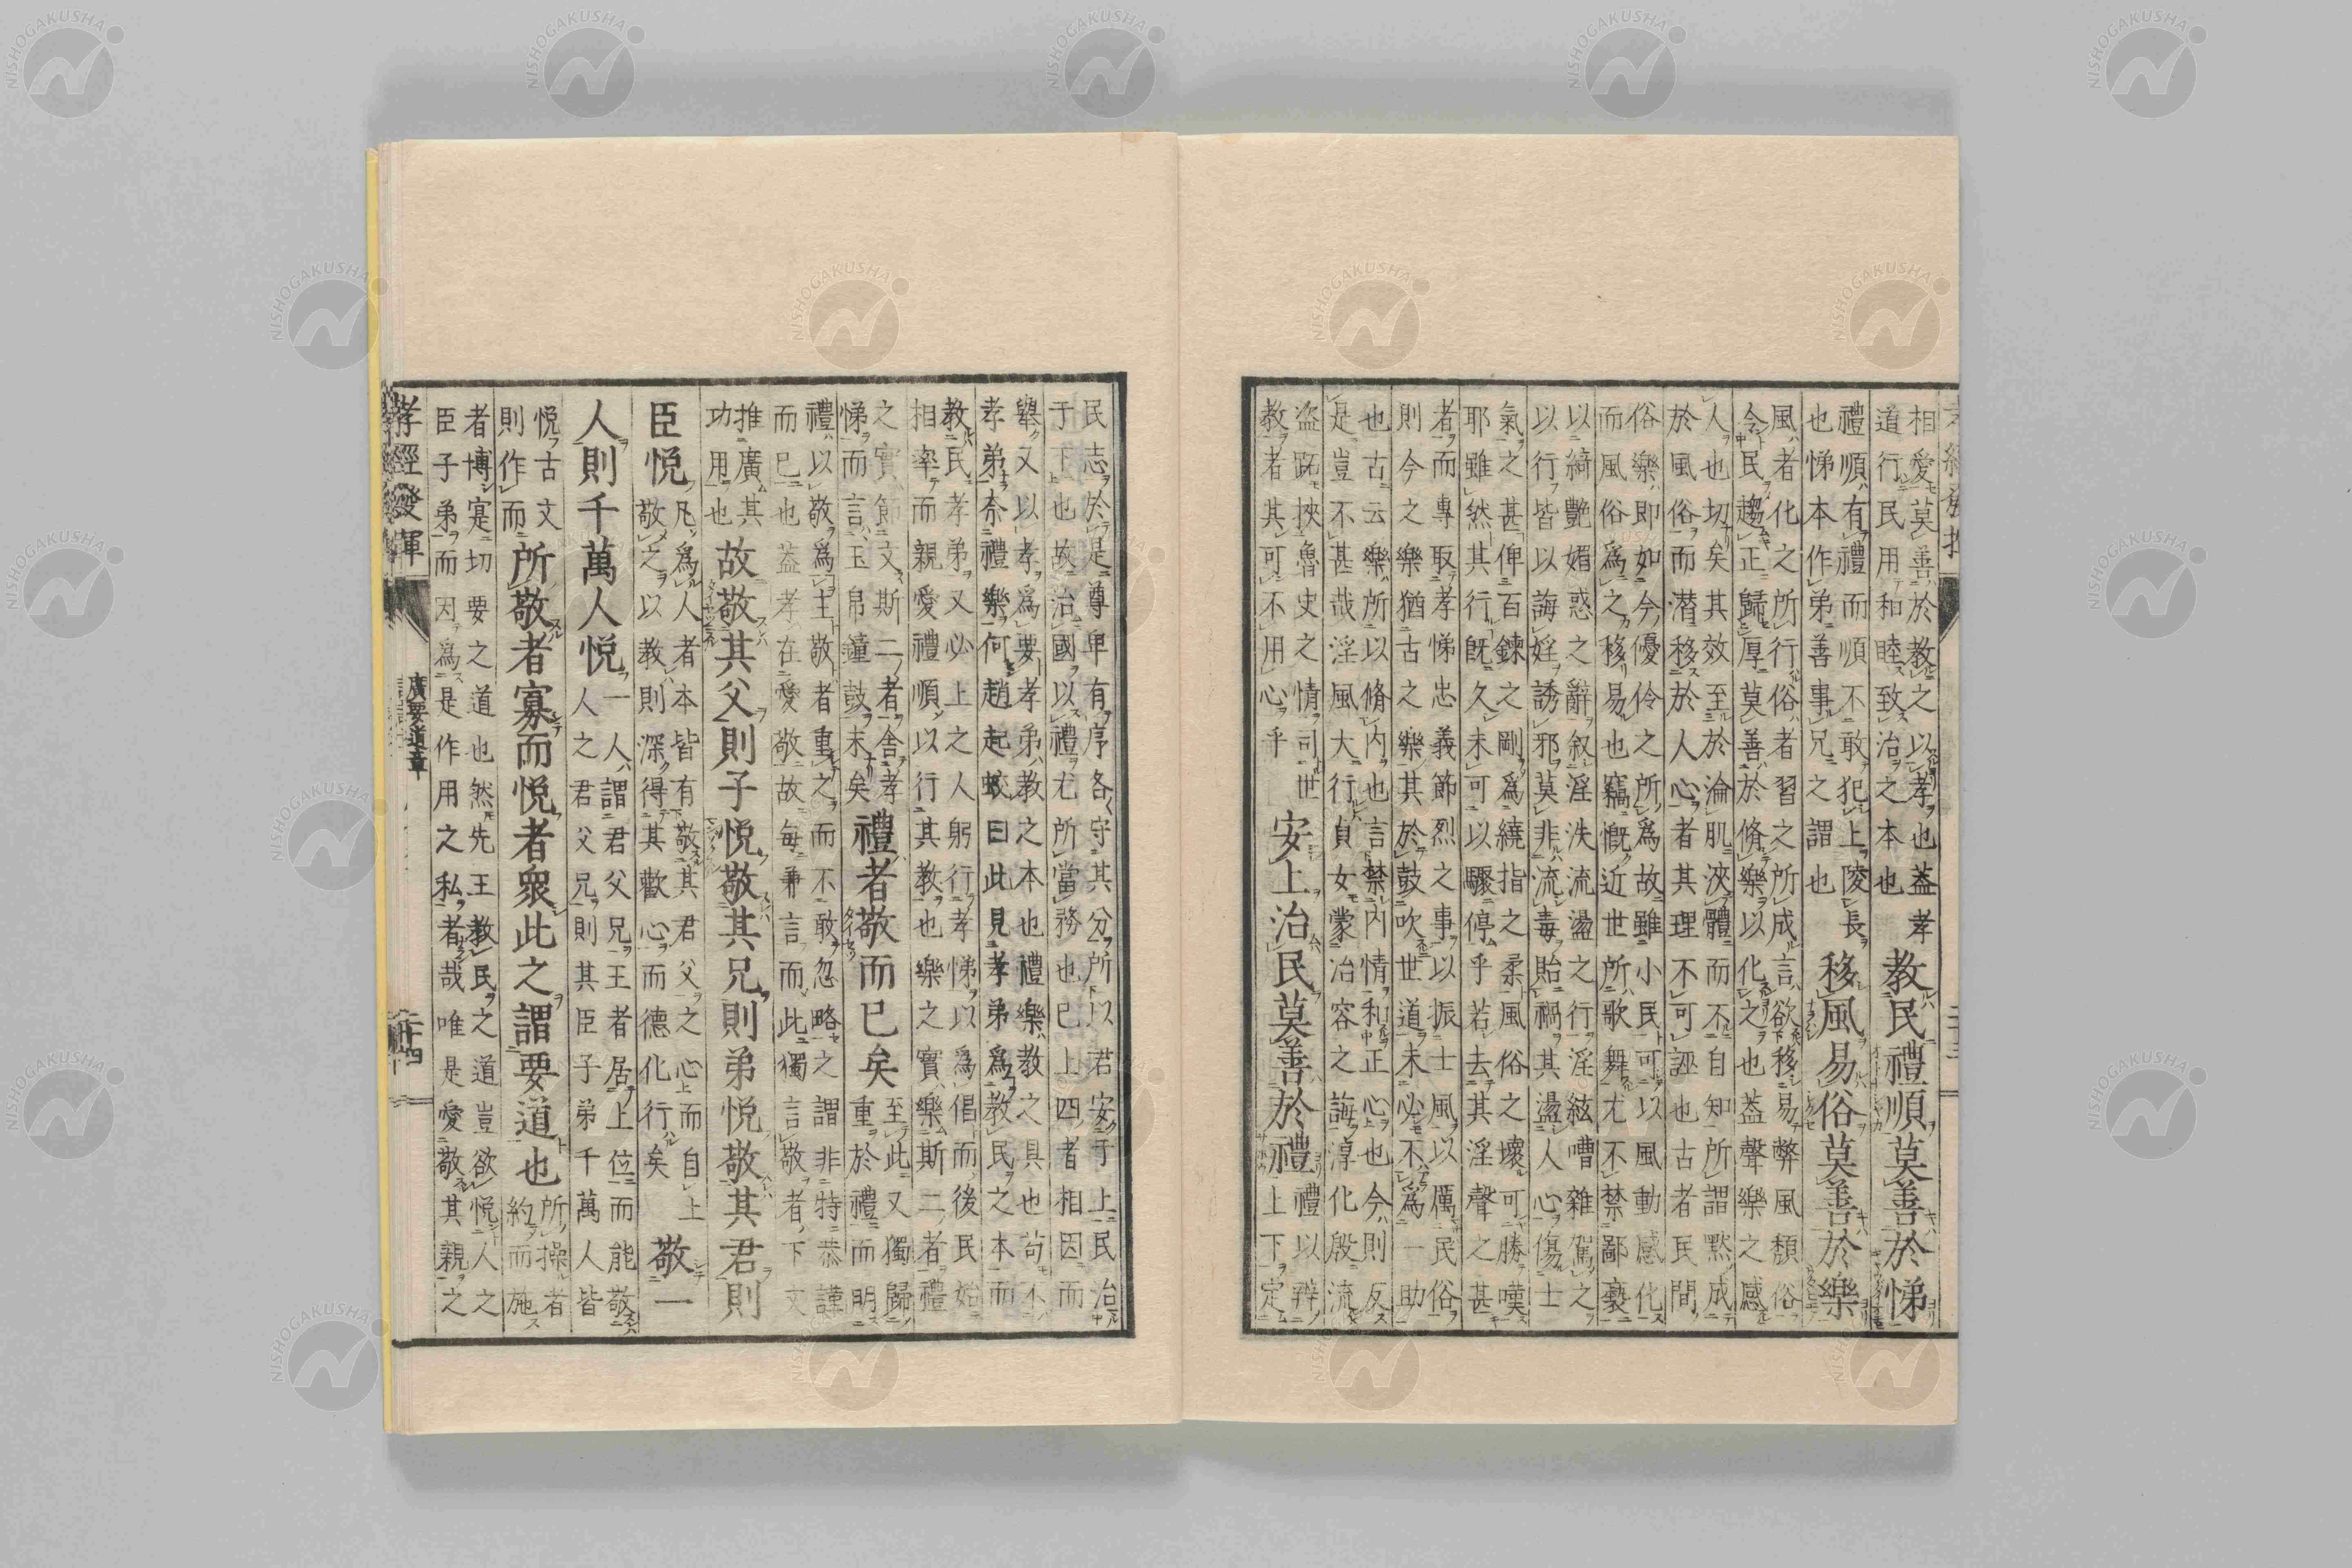 相愛莫善於教之以孝也葢孝
道行民用和睦致治之本也
教民禮順莫善於悌
禮順有禮而順不敢犯上陵長
也悌本作弟善事兄之謂也
移風易俗莫善於樂
風者化之所行俗者習之所成言欲移易弊風頽俗
令民趨正歸厚莫善於脩樂以化之也葢聲樂之感
人也切矣其效至於淪肌浹體而不自知所謂黙成
於風俗而潜移於人心者其理不可誣也古者民間
俗樂即如今優伶之所為故雖小民可以風動感化
而風俗為之移易也竊慨近世所歌舞尤不禁鄙褻
以綺艷媚惑之辭叙淫泆流盪之行淫絃嘈雜駕之
以行皆以誨婬誘邪莫非流毒貽禍其盪人心傷士
氣之甚俾百鍊之剛為繞指之柔風俗之壞可勝嘆
耶雖然其行既久未可以驟停乎若去其淫聲之甚
者而專取孝悌忠義節烈之事以振士風以厲民俗
則今之樂猶古之樂其於鼓吹世道未必不為一助
也古云樂所以脩内也言禁内情和正心也今則反
是豈不甚哉淫風大行貞女蒙冶容之誨淳化殷流
盗跖挾魯史之情司世
教者其可不用心乎
安上治民莫善於禮
禮以辨
上下定
民志於是尊卑有序各守其分所以君安于上民治
于下也故治國以禮尤所當務也已上四者相因而
舉又以孝為要孝弟教之本也禮樂教之具也苟不
孝弟奈禮樂何趙起蛟曰此見孝弟為教民之本而
教民孝弟又必上之人躬行孝悌以為倡而後民始
相率而親愛禮順以行其教也樂之實樂斯二者禮
之實節文斯二者舍孝
悌而言玉帛鐘鼓末矣
禮者敬而已矣
至此又獨歸
重於禮而明
禮以敬為主敬者重之而不敢忽略之謂非特恭謹
而已也葢孝在愛敬故毎兼言而此獨言敬者下文
推廣其
功用也
故敬其父則子悦敬其兄則弟悦敬其君則
臣悦
凡為人者本皆有敬其君父之心而自上
敬之以教則深得其歡心而德化行矣
敬一
人則千萬人悦
一人謂君父兄王者居上位而能敬
人之君父兄則其臣子弟千萬人皆
悦古文
則作而
所敬者寡而悦者衆此之謂要道也
所操者
約而施
者博寔切要之道也然先王教民之道豈欲悦人之
臣子弟而因為是作用之私者哉唯是愛敬其親之
孝經發揮
廣要道章
二十四